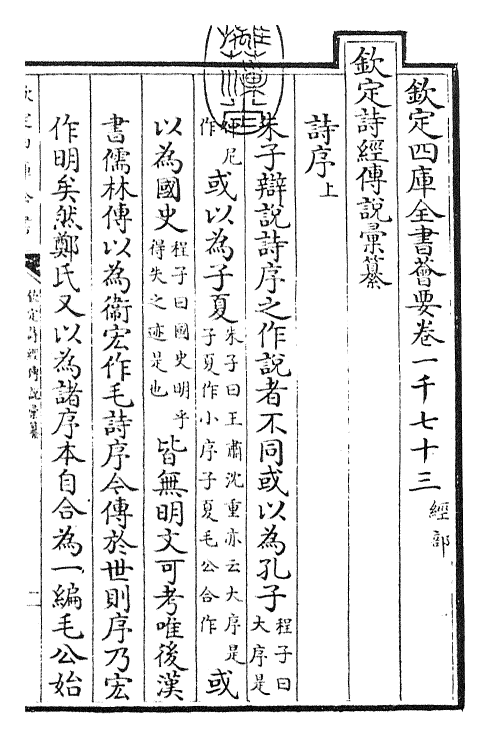 欽定四庫全書薈要卷一千七十三 經部
欽定詩經傳說彙纂
詩序上
朱子辯說詩序之作說者不同或以為孔子程子曰大序是
仲尼作或以為子夏朱子曰王肅沈重亦云大序是子夏作小序子夏毛公合作或
以為國史程子曰國史明乎得失之迹是也皆無明文可考唯後漢
書儒林傳以為衞宏作毛詩序今傳於世則序乃宏
作明矣然鄭氏又以為諸序本自合為一編毛公始
欽定四庫全書
欽定詩經傳說彙纂